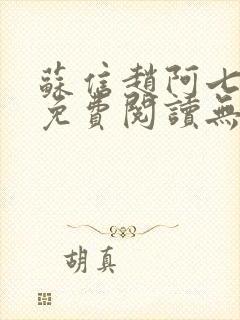 蘇信趙阿七
免費閱讀無
胡真